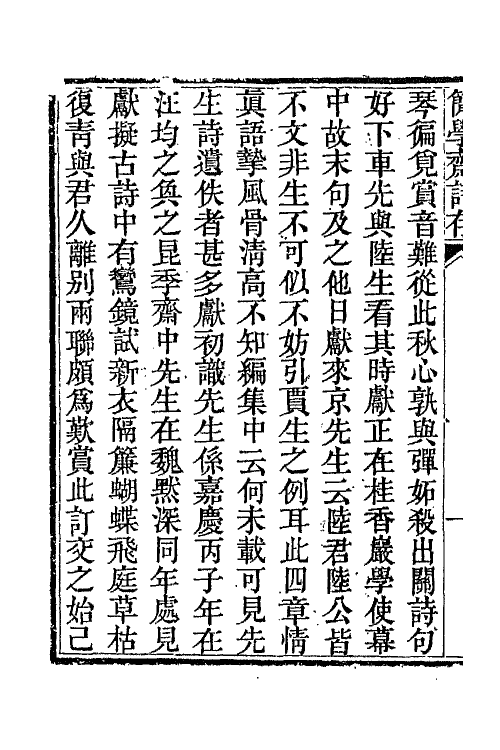 簡學齋詩存
琴徧覓賞音難從此秋心孰與彈妬殺出關詩句
好下車先與陸生看其時獻正在桂香巖學使幕
中故末句及之他日獻來京先生云陸君陸公皆
不文非生不可似不妨引賈生之例耳此四章情
眞語摯風骨淸高不知編集中云何未載可見先
生詩遺佚者甚多獻初識先生係嘉慶丙子年在
汪均之奐之昆季齋中先生在魏默深同年處見
獻擬古詩中有鸞鏡試新衣隔簾蝴蝶飛庭草枯
復靑與君久離别兩聯頗爲歎賞此訂交之始己